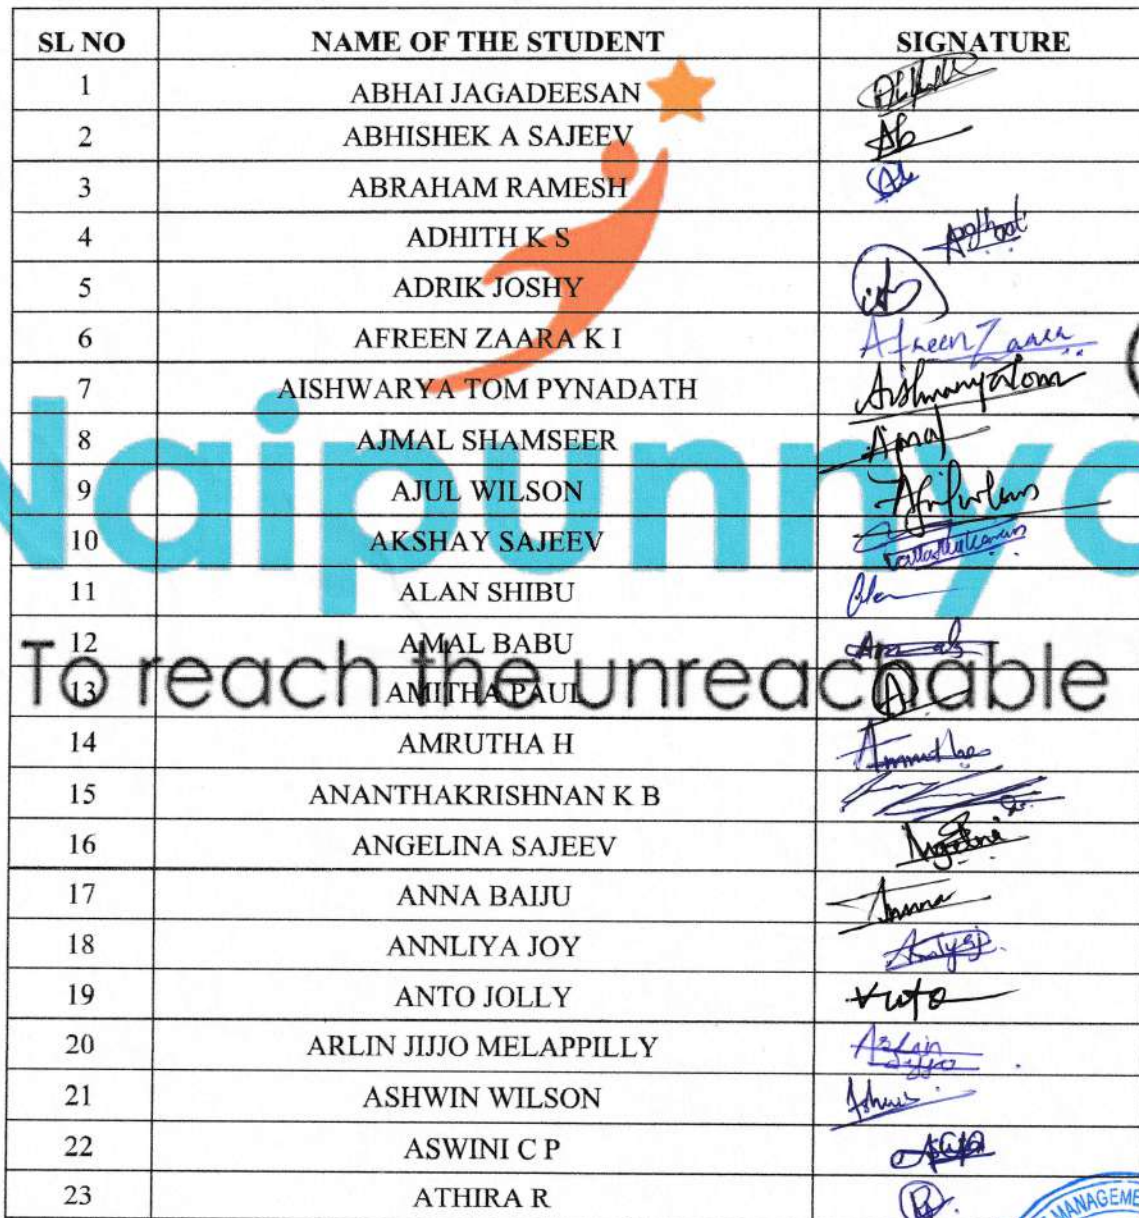 SL NO NAME OF THE STUDENT SIGNATURE
1 ABHAI JAGADEESAN
2 ABHISHEK A SAJEEV Ab
3 ABRAHAM RAMESH
4 ADHITH K S
5 ADRIK JOSHY
6 AFREEN ZAARA K I Afreen Zaara
7 AISHWARYA TOM PYNADATH Aishwarya Tom
8 AJMAL SHAMSEER Ajmal
9 AJUL WILSON
10 AKSHAY SAJEEV
11 ALAN SHIBU Alan
12 AMAL BABU Amal
13 AMITHA PAUL A
14 AMRUTHA H Amrutha
15 ANANTHAKRISHNAN K B
16 ANGELINA SAJEEV Angelina
17 ANNA BAIJU Anna
18 ANNLIYA JOY
19 ANTO JOLLY Anto
20 ARLIN JIJJO MELAPPILLY Arlin Jijjo
21 ASHWIN WILSON
22 ASWINI C P
23 ATHIRA R
Naipunnya
To reach the unreachable